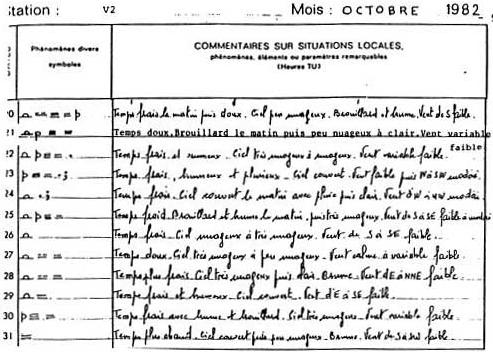 Station : V2 Mois : OCTOBRE 1982
Phénomènes divers
symboles
COMMENTAIRES SUR SITUATIONS LOCALES,
phénomènes, éléments ou paramètres remarquables
(Heures TU)
20 Temps frais le matin puis doux. Ciel peu nuageux. Brouillard et brume. Vent de S faible.
21 Temps doux. Brouillard le matin puis peu nuageux à clair. Vent variable
faible
22 Temps frais et brumeux. Ciel très nuageux à nuageux. Vent variable faible.
23 Temps frais, brumeux et pluvieux. Ciel couvert. Vent faible puis W à SW modéré.
24 Temps frais. Ciel couvert le matin avec pluie puis clair. Vent d'W à NW modéré.
25 Temps froid. Brouillard et brume le matin, puis très nuageux. Vent de S à SE faible à modéré
26 Temps frais. Ciel nuageux à très nuageux. Vent de S à SE faible.
27 Temps doux. Ciel très nuageux à peu nuageux. Vent calme à variable faible
28 Temps plus frais. Ciel très nuageux puis clair. Brume. Vent d'E à NNE faible.
29 Temps frais et brumeux. Ciel couvert. Vent d'E à SE faible.
30 Temps frais avec brume et brouillard. Ciel très nuageux. Vent variable faible
31 Temps plus chaud. Ciel couvert puis peu nuageux. Brume. Vent de S à SW faible.